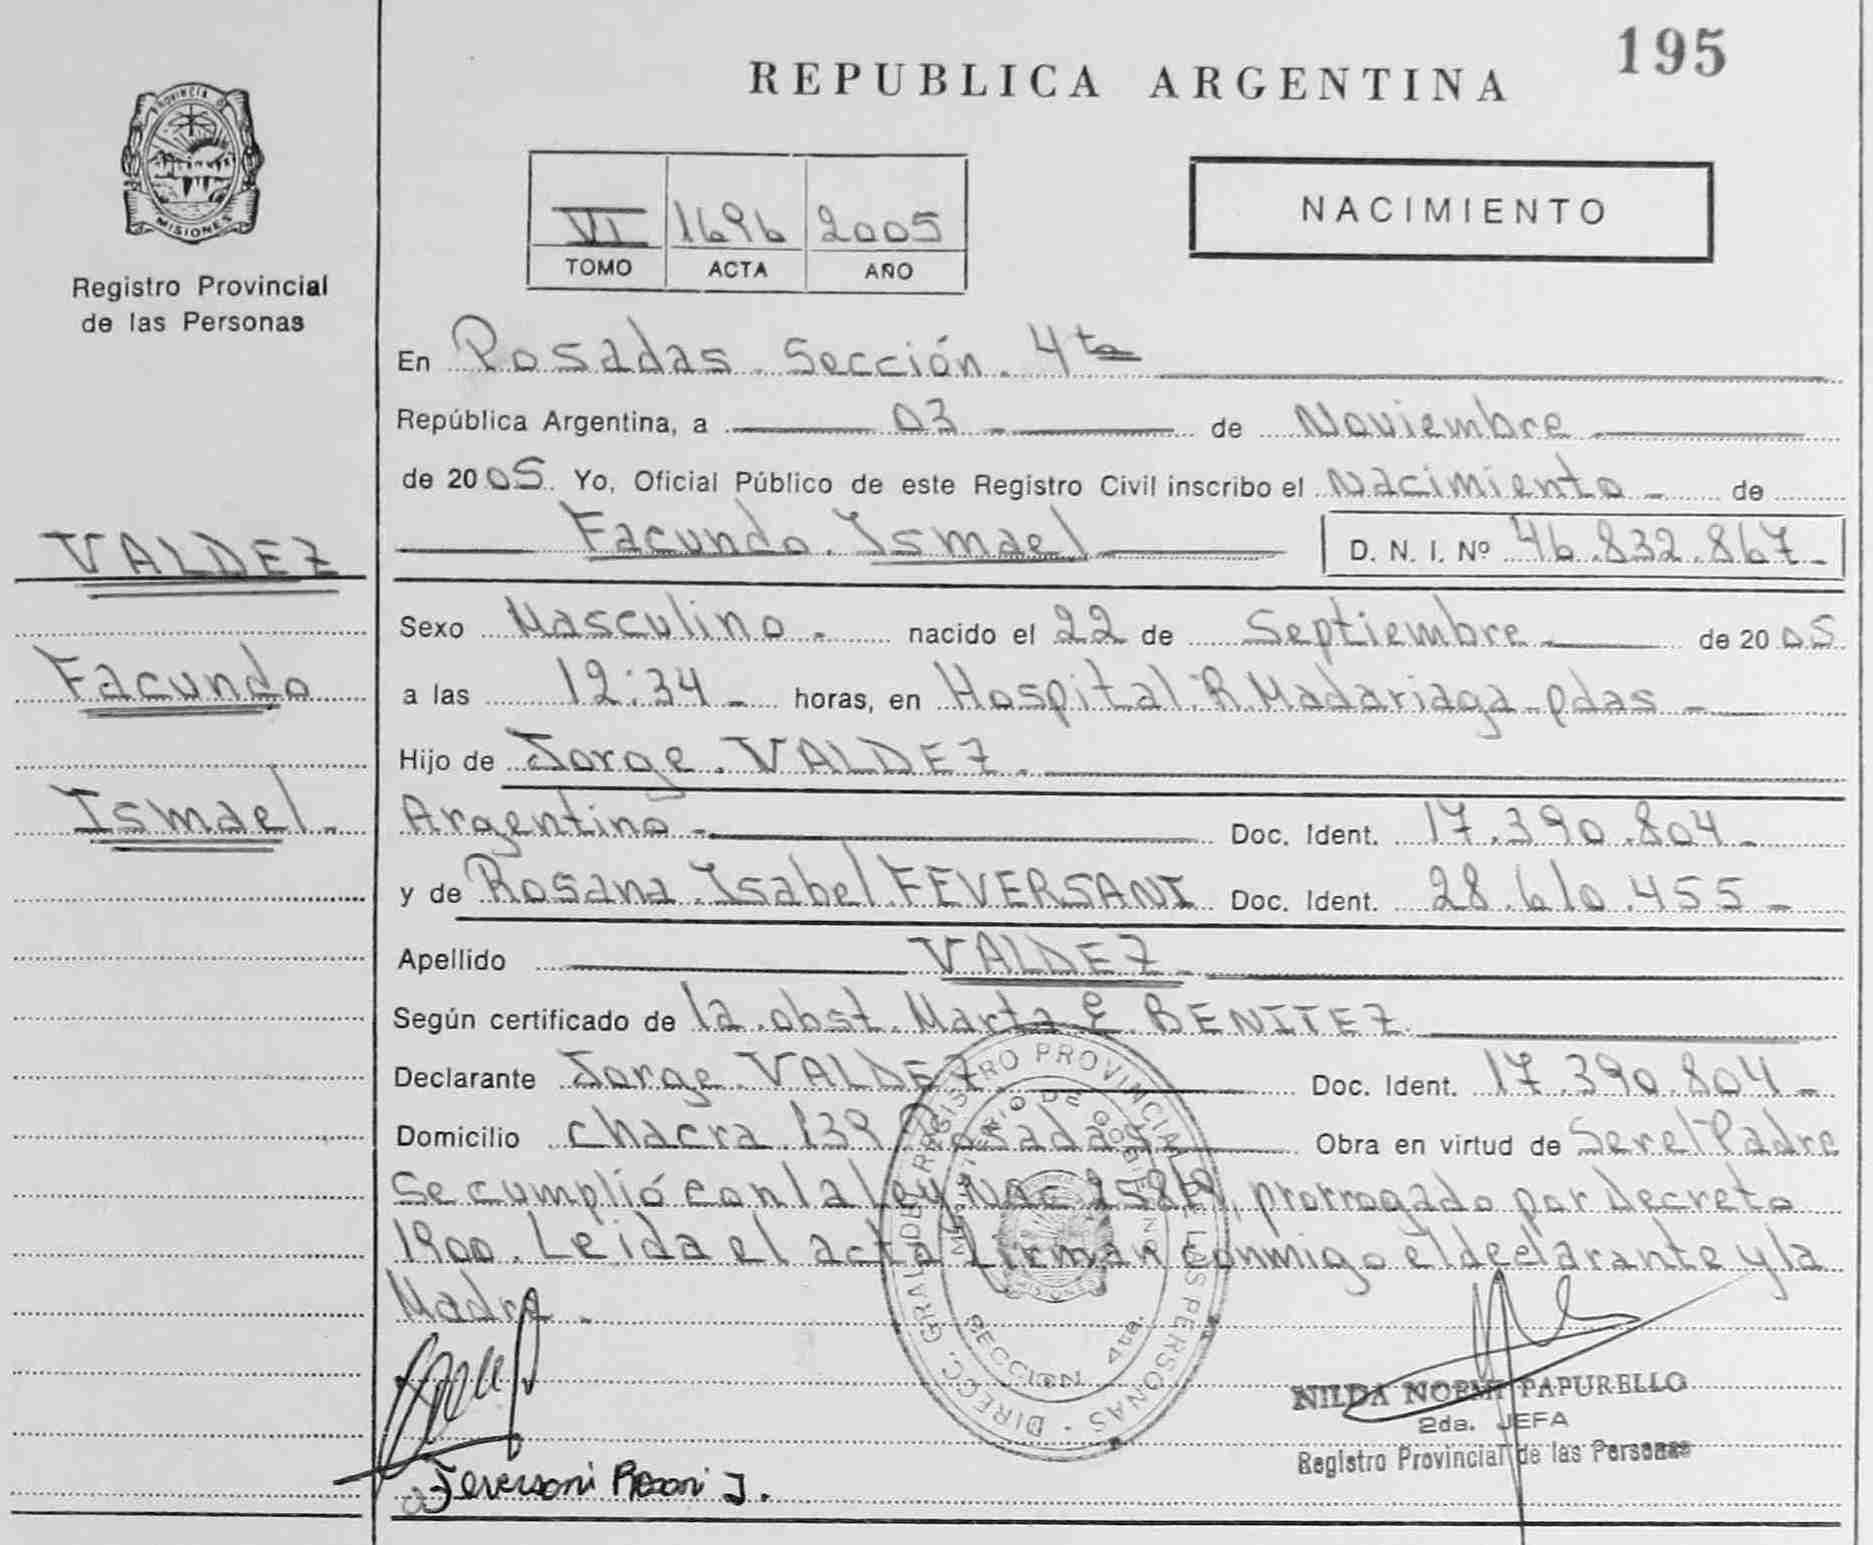 195
REPUBLICA ARGENTINA
PROVINCIA DE
MISIONES
Registro Provincial
de las Personas
VI 1696 2005
TOMO ACTA AÑO
NACIMIENTO
En Posadas. Sección. 4ta
República Argentina, a 03 de Noviembre
de 2005. Yo, Oficial Público de este Registro Civil inscribo el Nacimiento - de
Facundo. Ismael D. N. I. Nº 46.832.867-
VALDEZ
Facundo
Ismael-
Sexo Masculino - nacido el 22 de Septiembre de 2005
a las 12:34 - horas, en Hospital. R. Madariaga - pdas -
Hijo de Jorge. VALDEZ.
Argentino - Doc. Ident. 17.390.804-
y de Rosana. Isabel. FEVERSANI Doc. Ident. 28.610.455-
Apellido VALDEZ-
Según certificado de la. obst. Marta E. BENITEZ.
Declarante Jorge VALDEZ Doc. Ident. 17.390.804-
Domicilio chacra 139 Posadas Obra en virtud de Ser el Padre
Se cumplió con la ley Nac 25819, prorrogado por decreto
1900. Leida el acta firman conmigo el declarante y la
Madre.
DIRECC. GRAL. DE REGISTRO PROVINCIAL DE LAS PERSONAS
MINISTERIO DE GOBIERNO
SECCION 4ta.
NILDA NOEMI PAPURELLO
2da. JEFA
Registro Provincial de las Personas